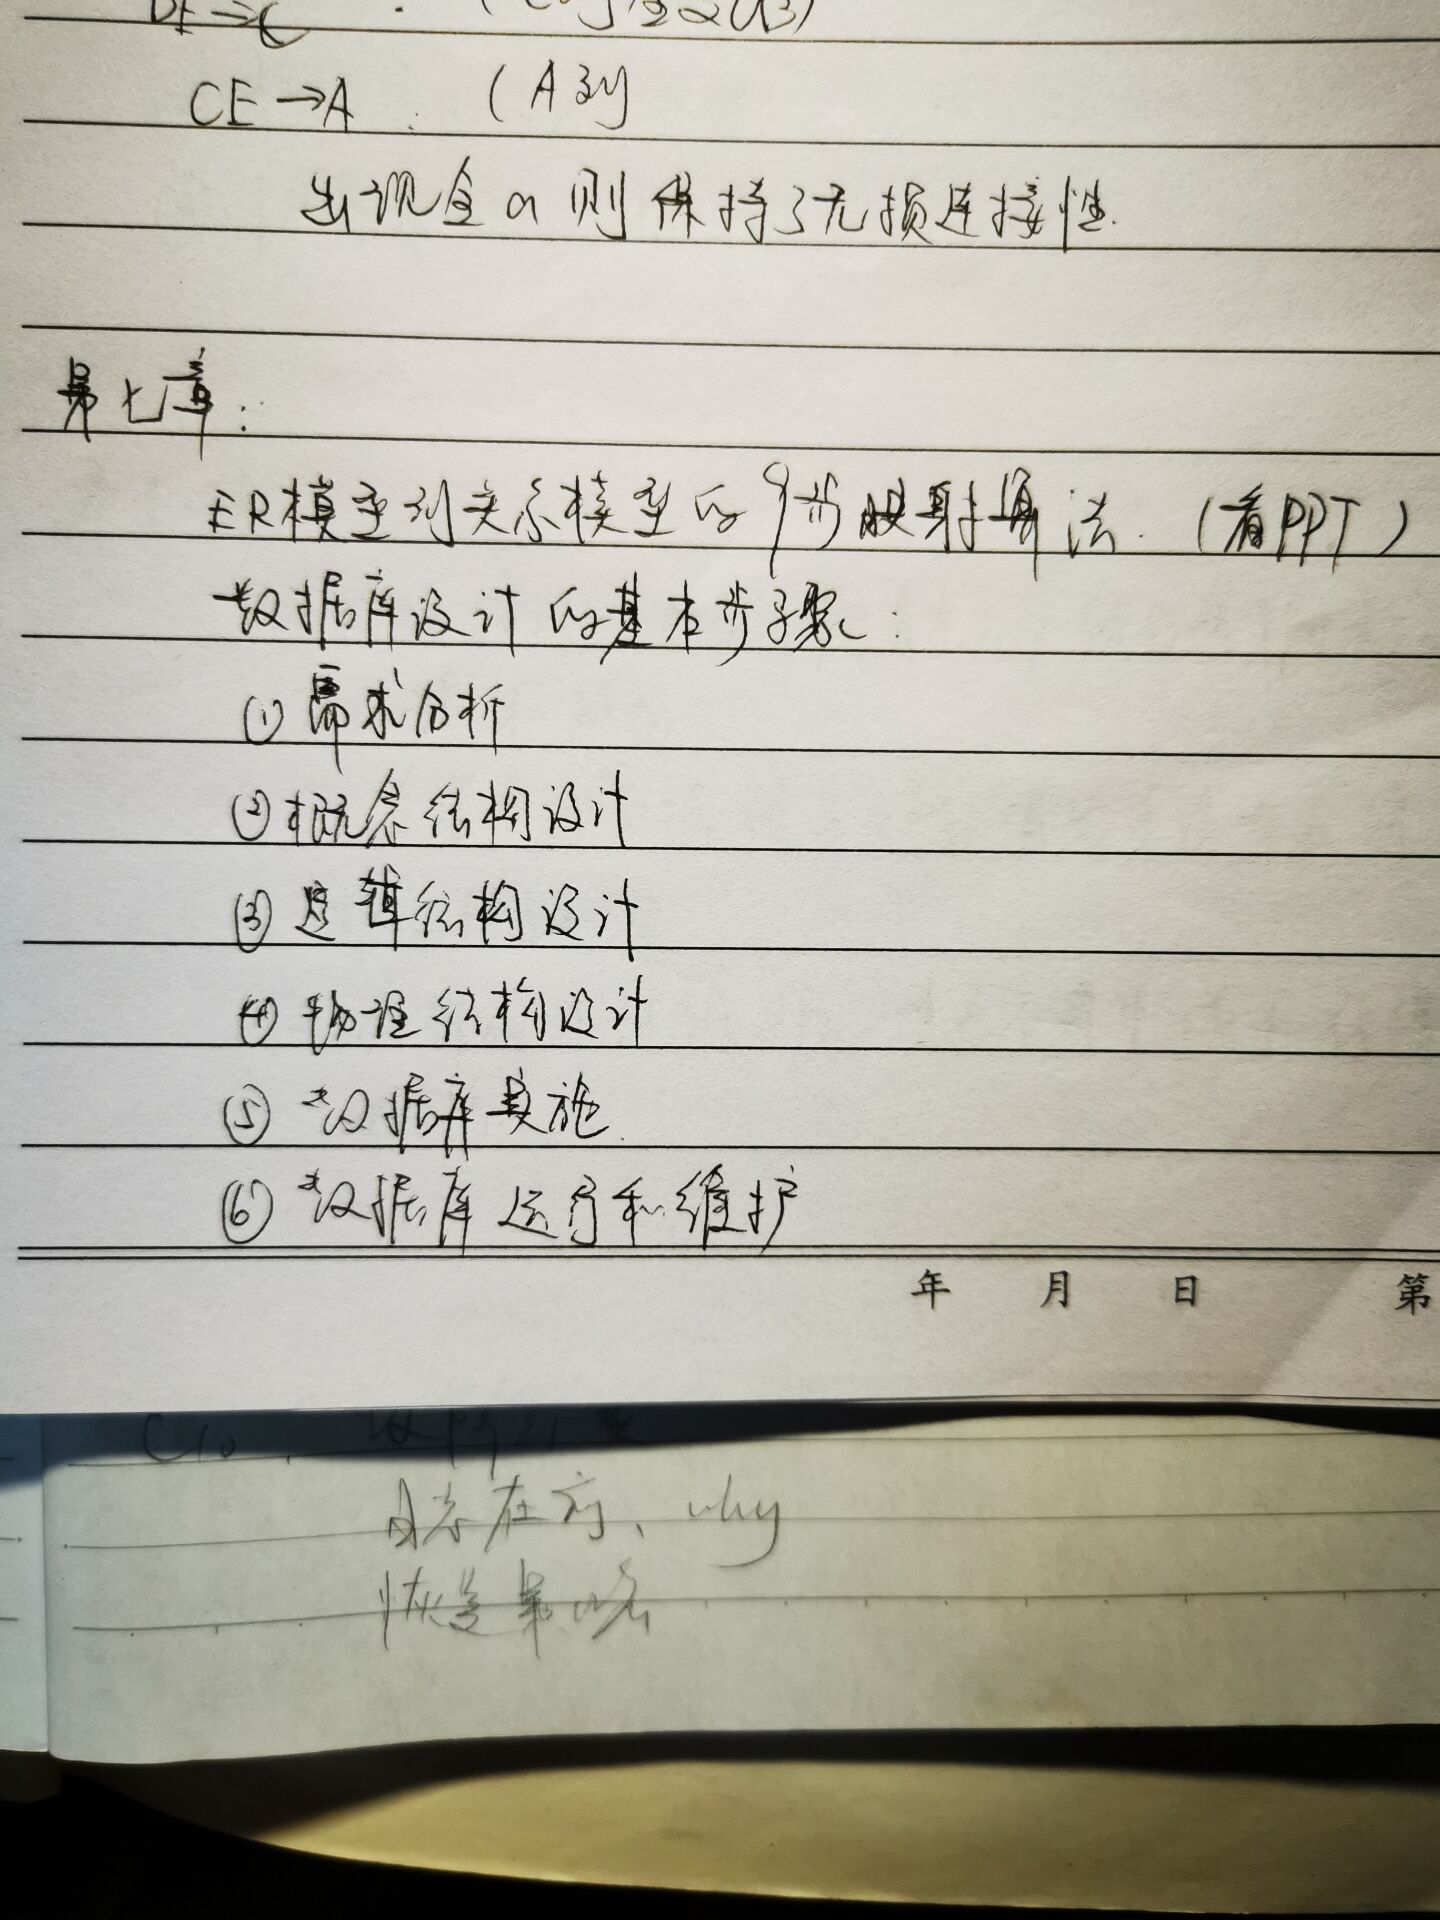 CE→A . (A列
出现全a 则保持了无损连接性.
第七章:
ER模型到关系模型的9步映射算法. (看PPT)
数据库设计的基本步骤:
①需求分析
②概念结构设计
③逻辑结构设计
④物理结构设计
⑤数据库实施.
⑥数据库运行和维护
年 月 日 第
C10.
日志在前、why
恢复策略